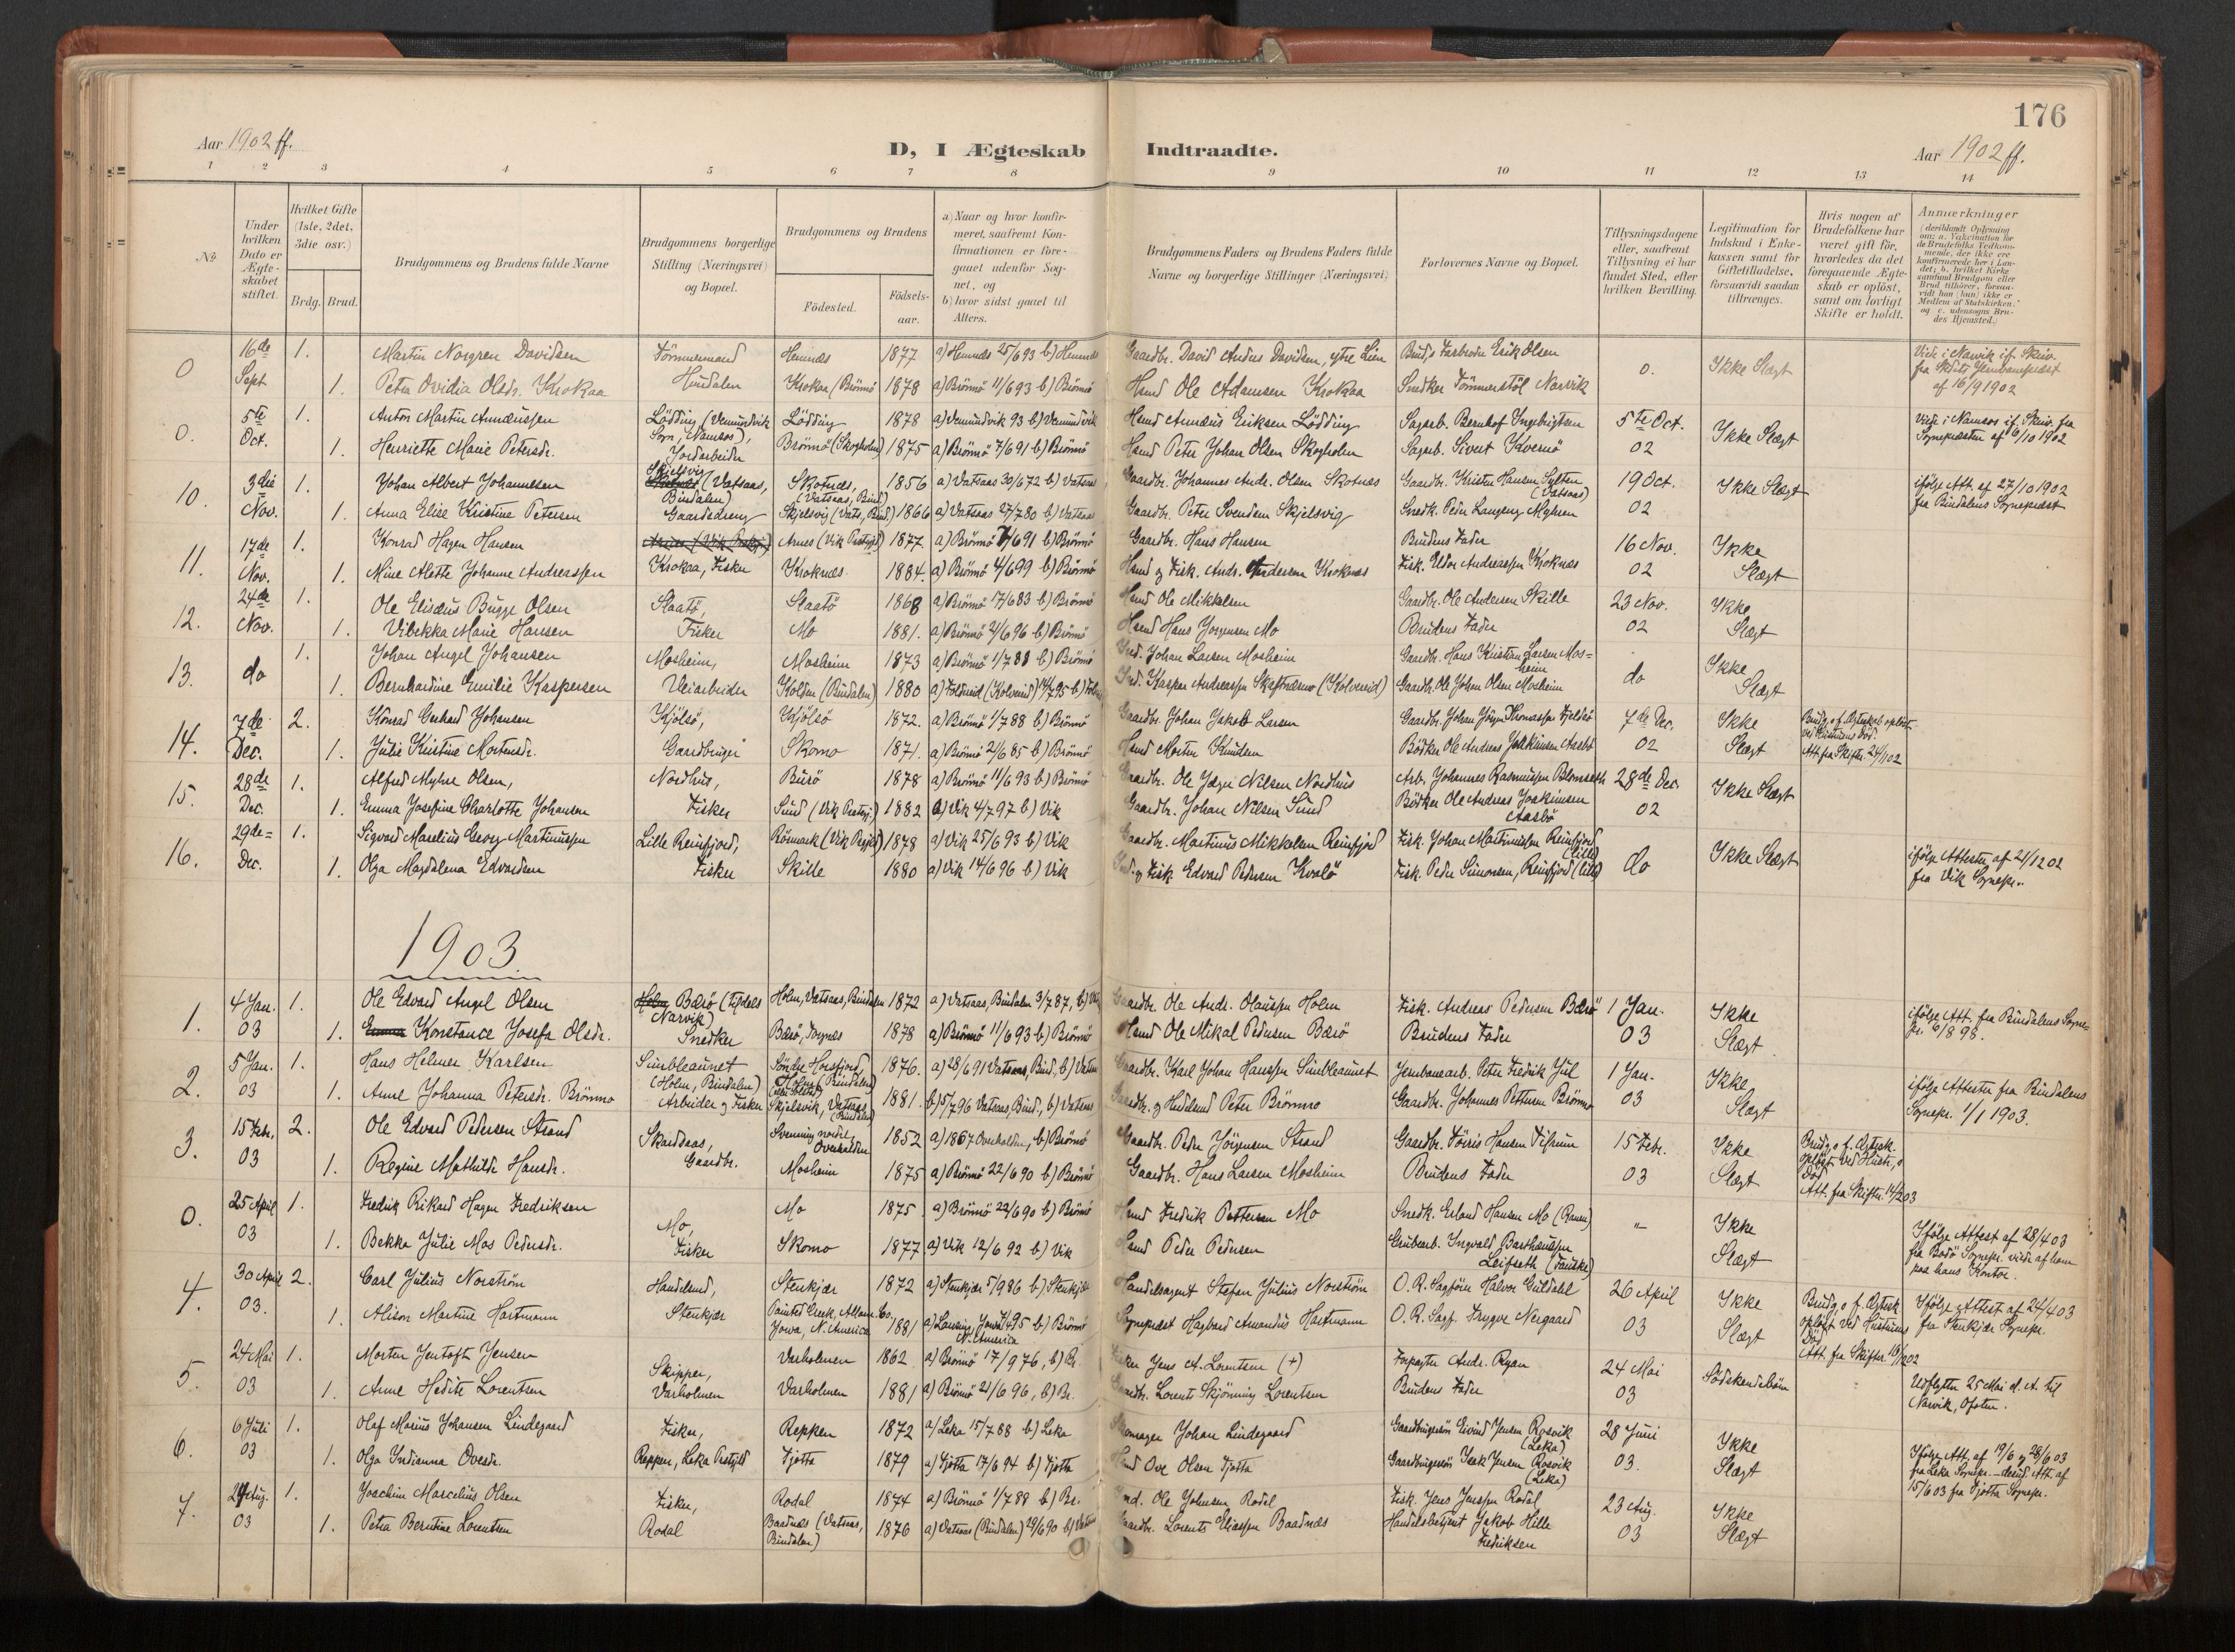 176
Aar 1902 ff.
D, I Ægteskab Indtraadte.
Aar 1902 ff.
1 2 3 4 5 6 7 8 9 10 11 12 13 14
No
Under hvilken Dato er Ægteskabet stiftet.
Hvilket Gifte (1ste, 2det, 3die osv.)
Brdg. Brud.
Brudgommens og Brudens fulde Navne
Brudgommens borgerlige Stilling (Næringsvei) og Bopæl.
Brudgommens og Brudens
Födested.
Födselsaar.
a) Naar og hvor konfirmeret, saafremt Konfirmationen er foregaaet udenfor Sognet, og
b) hvor sidst gaaet til Alters.
Brudgommens Faders og Brudens Faders fulde Navne og borgerlige Stillinger (Næringsvei)
Forlovernes Navne og Bopæl.
Tillysningsdagene eller, saafremt Tillysning ei har fundet Sted, efter hvilken Bevilling.
Legitimation for Indskud i Enkekassen samt for Giftetilladelse, forsaavidt saadan tiltrænges.
Hvis nogen af Brudefolkene har været gift för, hvorledes da det foregaaende Ægteskab er oplöst, samt om lovligt Skifte er holdt.
Anmerkninger
(deriblandt Oplysning om: a. Vakcination for de Brudefolks Vedkommende, der ikke ere konfirmerede her i Landet; b. hvilket Kirkesamfund Brudgom eller Brud tilhörer, forsaavidt han (hun) ikke er Medlem af Statskirken, og c. udensogns Brudes Hjemsted.)
0 16de Sept 1. Martin Norgren Davidsen Tömmermand Hemnæs 1877 a) Hemnæs 25/6 93 b) Hemnæs Gaardbr. David Andus Davidsen, ytre Lien Erik Olsen 0. Ikke Slægt
1. Petra Ovidia Olsdr. Krokaa Krokaa (Brönnö 1878 a) Brönnö 11/6 93 b) Brönnö Hmd Ole Adamsen Krokaa Snedker Narvik
af 16/9 1902
0. 5te Oct. 1. Anton Martin Lödding (Vemundvik Sogn, Namsos), Jordarbeider Lödding 1878 a) Vemundvik 93 b) Vemundvik Hmd Eriksen Lödding 5te Oct. 02 Ikke Slægt
1. Henriette Marie Petersdr. Brönnö (Skogholm) 1875 a) Brönnö 7/6 91 b) Brönnö Hmd Peter Johan Olsen Skogholm Sagarb. Sivert Kvernö
Viede i Namsos if. Skriv. fra Sognepræsten af 6/10 1902
10. 3die Nov. 1. Johan Albert Johannesen Skjelsvig (Vatsaas, Bindalen) Gaardsdreng Skotnes, (Vatsaas, Bind) 1856 a) Vatsaas 30/6 72 b) Vatsaas Gaardbr. Johannes Andr. Olsen Skotnes Gaardbr. Kristen Hansen Sylten (Vatsaas) 19 Oct. 02 Ikke Slægt
1. Anna Elise Kristine Petersen Skjelsvig (Vats., Bind.) 1866 a) Vatsaas 27/7 80 b) Vatsaas Gaardbr. Peter Svendsen Skjelsvig Snedk. Peder Langeng Myhren
ifölge Att. af 27/10 1902 fra Bindalens Sognepræst
11. 17de Nov. 1. Konrad Hagen Hansen Krokaa, Fisker Arnes (Vik Prstgjd) 1877 a) Brönnö 7/6 91 b) Brönnö Gaardbr. Hans Hansen Brudens Fader 16 Nov. 02 Ikke Slægt
1. Mine Alette Johanne Andreassen Kroknæs 1884. a) Brönnö 4/6 99 b) Brönnö Hmd og Fisk. Andr. Andersen Kroknæs Fisk. Edor Andreassen Kroknæs
12. 24de Nov. 1. Ole Elisæus Bugge Olsen Slaatö, Fisker Slaatö 1868 a) Brönnö 17/6 83 b) Brönnö Hmd Ole Mikkelsen Gaardbr. Ole Andersen Skille 23 Nov. 02 Ikke Slægt
1. Vibekka Marie Hansen Mo 1881. a) Brönnö 21/6 96 b) Brönnö Hmd Hans Jörgensen Mo Brudens Fader
13. do 1. Johan Angel Johansen Mosheim, Veiarbeider Mosheim 1873 a) Brönnö 1/7 88 b) Brönnö Ind. Johan Larsen Mosheim Gaardbr. Hans Kristian Larsen Mosheim do Ikke Slægt
1. Bernhardine Emilie Kaspersen Kolden (Bindalen) 1880 a) Foldereid (Kolvereid) Ind. Kasper Andreassen Gaardbr. Ole Johan Olsen Mosheim
14. 7de Dec. 2. Konrad Gerhard Johansen Kjölsö, Gaardbruger Kjölsö 1872. a) Brönnö 1/7 88 b) Brönnö Gaardbr. Johan Jakob Larsen Gaardbr. Johan Jörgen Thomassen 7de Dec. 02 Ikke Slægt
1. Julie Kristine Mortensdr. Skomo 1871. a) Brönnö 21/6 85 b) Brönnö Hmd Morten Knudsen Bödker Ole Andreas Joakimsen Aasbö
Brudg.s f. Ægteskab oplöst ved Hustruens Död. Att. fra Skifter. 24/11 02
15. 28de Dec. 1. Alfred Myhre Olsen, Nordhus, Fisker Burö 1878 a) Brönnö 11/6 93 b) Brönnö Gaardbr. Ole Jæger Nilsen Nordhus Arb. Johannes Rasmussen Blomseth 28de Dec. 02 Ikke Slægt
1. Emma Josefine Charlotte Johansen Sund (Vik Prstgj.) 1882 a) Vik 4/7 97 b) Vik Gaardbr. Johan Nilsen Sund Bödker Ole Andreas Joakimsen Aasbö
16. 29de Dec. 1. Sigvard Marelius Georg Martinussen Lille Reinfjord, Fisker Römark (Vik Prgjd) 1878 a) Vik 25/6 93 b) Vik Gaardbr. Martinus Mikkelsen Reinfjord Fisk. Johan Martinussen Reinfjord (lille) do Ikke Slægt
1. Olga Magdalena Edvardsen Skille 1880 a) Vik 14/6 96 b) Vik Ind. og Fisk Edvard Pedersen Kvalö Fisk. Peder Simonsen, Reinfjord (lille)
ifölge Attester af 21/12 02 fra Vik Sognepr.
1903
1. 4 Jan. 03 1. Ole Edvard Angel Olsen Holm Bærö Narvik) Snedker Holm, Vatsaas, Bindalen 1872 a) Vatsaas, Bindalen 3/7 87, b) Gaardbr. Ole Andr. Olaussen Holm Fisk. Andreas Pedersen Bærö 1 Jan. 03 Ikke Slægt
1. Emma Konstance Josefa Olsdr. Bærö, Tognæs 1878 a) Brönnö 11/6 93 b) Brönnö Hmd Ole Mikal Pedersen Bærö Brudens Fader
ifölge Att. fra Bindalens Sognepr. 6/8 98.
2. 5 Jan. 03 1. Hans Helmer Karlsen Simbleaunet (Holm, Bindalen) Arbeider og Fisker Söndre Horsfjord, Holm (Bindalen) 1876. a) 28/6 91 Vatsaas, Bind, b) Vatsaas Gaardbr. Karl Johan Hanssen Simbleaunet Jernbanearb. Peter Fredrik Jul 1 Jan. 03 Ikke Slægt
1. Anne Johanna Petersdr. Brönmo Skjelsvik, Vatsaas (Bindalen) 1881. 5/7 96 Vatsaas, Bind, b) Vatsaas Gaardbr. og Peter Brönmo Gaardbr. Johannes Pettersen Brönmo
ifölge Attester fra Bindalens Sognepr. 1/1 1903.
3. 15 Febr. 03 2. Ole Edvard Pedersen Strand Skarddaas, Gaardbr. Svenning nordre, Overhalden 1852 a) 1867 Overhalden, b) Brönnö Gaardbr. Peder Jörgensen Strand Gaardbr. Hansen 15 Febr. 03 Ikke Slægt
1. Regine Mathilde Hansdr. Mosheim 1875 a) Brönnö 22/6 90 b) Brönnö Gaardbr. Hans Larsen Mosheim Brudens Fader
Brudg.s f. Ægtesk. oplöst ved Hustr.s Död Att. fra Skifter. 14/2 03
0. 25 April 03 1. Fredrik Rikard Hagen Fredriksen Mo, Fisker Mo 1875 a) Brönnö 22/6 90 b) Brönnö Hmd Fredrik Pettersen Mo Snedk. Erland Hansen Mo (Ranen) " Ikke Slægt
1. Bekka Julie Mos Pedersdr. Skomo 1877 a) Vik 12/6 92 b) Vik Hmd Peder Pedersen Grubearb. Ingvald Barthaussen Leifseth (Fauske)
Ifölge Attest af 28/4 03 fra Bodö Sognepr. viede af ham paa hans Kontor.
4. 30 April 03. 2. Carl Julius Norström Handelsmd, Stenkjær Stenkjær 1872 a) Stenkjær 5/9 86 b) Stenkjær Handelsagent Stefan Julius Norström O. R. Sagförer Halvor Guldahl 26 April 03 Ikke Slægt
1. Alison Martine Hartmann Painted Creek, Allam. Co. Jowa, N. America 1881 a) Lansing, Jowa 95 b) Brönnö N. America Sognepræst Hagbard Amandus Hartmann O. R. Sagf. Trygve Nergaard
Brudg.s f. Ægtesk. oplöst ved Hustruens Död Att. fra Skifter 19/12 02
Ifölge Attest af 24/4 03 fra Stenkjær Sognepr.
5. 24 Mai 03 1. Morten Jentoft Jensen Skipper, Varholmen Varholmen 1862 a) Brönnö 17/9 76, b) Br. Fisker Jens A. Lorentsen (+) Forpagter Andr. Ryan 24 Mai 03 Södskendebörn
1. Anne Hedite Lorentsen Varholmen 1881 a) Brönnö 21/6 96, b) Br. Gaardbr. Lorents Skjönning Lorentsen Brudens Fader
Udflytter 25 Mai d. A. til Narvik, Ofoten.
6. 6 Juli 03 1. Olaf Marius Johansen Lindegaard Fisker, Reppen, Leka Prstgjld Reppen 1872 a) Leka 15/7 88 b) Leka Skomager Johan Lindegaard Gaardbrugersön Eivind Jensen Rosvik (Leka) 28 Juni 03. Ikke Slægt
1. Olga Indianna Ovesdr. Tjötta 1879 a) Tjötta 17/6 94 b) Tjötta Hmd Ove Olsen Tjötta Gaardbrugersön Isak Jensen Rosvik (Leka)
Ifölge Att. af 19/6 og 28/6 03 fra Leka Sognepr. – desud. Att. af 15/6 03 fra Tjötta Sognepr.
7. 24 Aug. 03 1. Joachim Marcelius Olsen Fisker, Rodal Rodal 1874 a) Brönnö 1/7 88 b) Br. Ind. Ole Johnsen Rodal Fisk. Jens Jenssen Rodal 23 Aug. 03 Ikke Slægt
1. Petra Berntine Lorentsen Baadnæs (Vatsaas, Bindalen) 1876 a) Vatsaas (Bindalen) 29/6 90 b) Vatsaas Gaardbr. Lorents Eliassen Baadnæs Handelsbetjent Jakob Hille Fredriksen